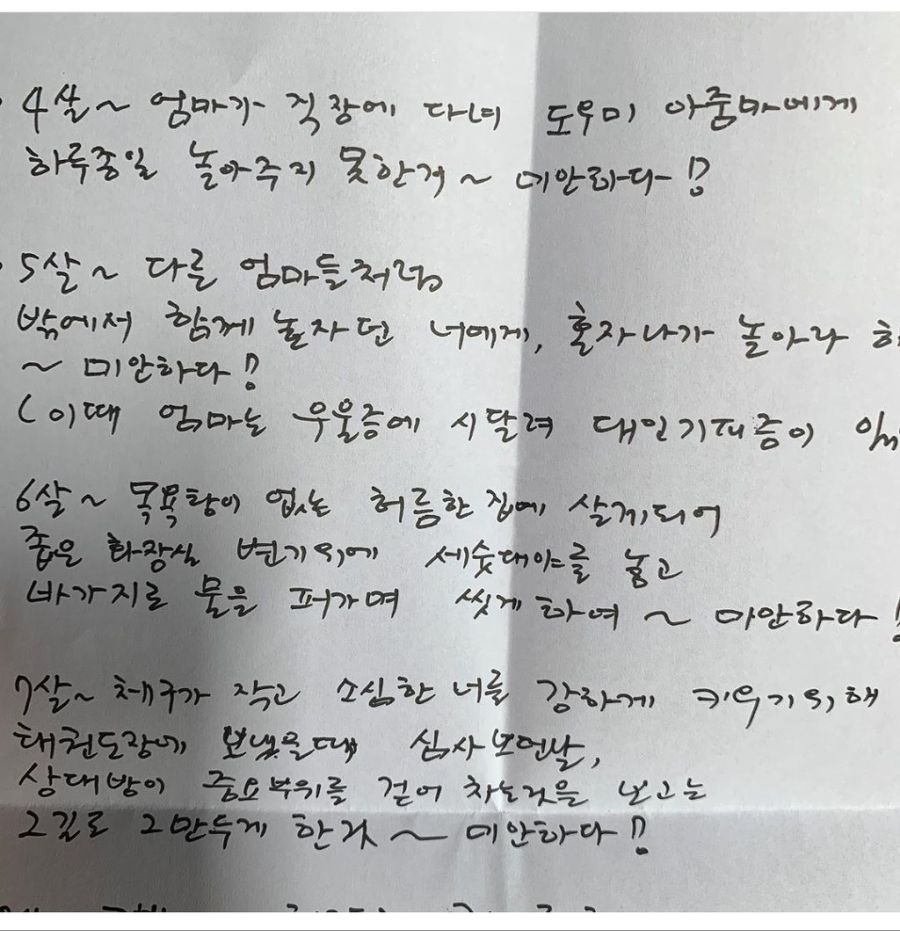 4살~ 엄마가 직장에 다녀 도우미 아줌마에게
하루종일 놀아주지 못한거 ~ 미안하다!!
5살~ 다른 엄마들처럼
밖에서 함께 놀자던 너에게, 혼자나가 놀아라
~ 미안하다!!
(이때 엄마는 우울증에 시달려 대인기피증이
6살~ 목욕탕이 없는 허름한 집에 살게되어
좁은 화장실 변기위에 세숫대야를 놓고
바가지로 물을 퍼가며 씻게하여 ~ 미안하다!
7살~ 체구가 작고 소심한 너를 강하게 키우기위해
태권도장에 보냈을때 심사보던날,
상대방이 중요부위를 걷어 차는것을 보고는
그길로 그만두게 한것 ~ 미안하다!!